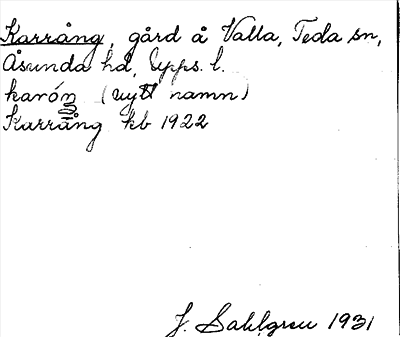 Karrång, gård å Valla, Teda sn,
Åsunda hd, Upps. l.
karón (nytt namn)
Karrång kb 1922
J. Sahlgren 1931